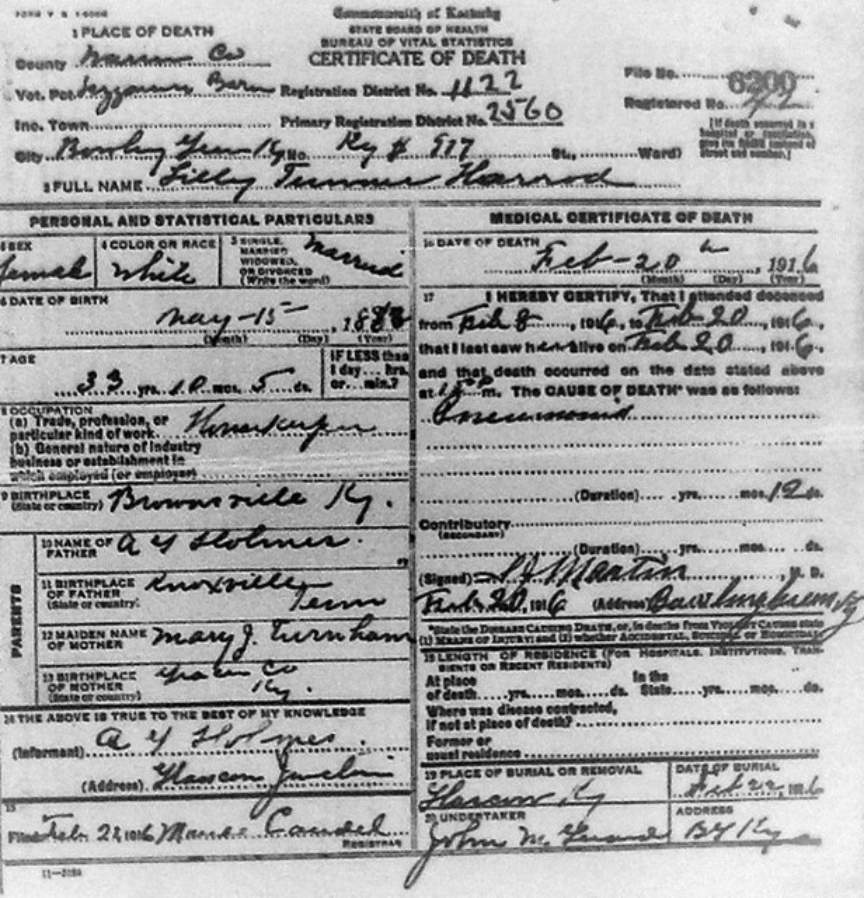 Commonwealth of Kentucky
STATE BOARD OF HEALTH
BUREAU OF VITAL STATISTICS
CERTIFICATE OF DEATH
1 PLACE OF DEATH
County Warren Co
Vot. Pct. Registration District No. 1122
File No. 6200
Inc. Town Primary Registration District No. 2560
Registered No.
[If death occurred in a hospital or institution, give its NAME instead of street and number.]
City Bowling Green Ky No. Ky St., Ward)
2 FULL NAME Lilly Turner Harrod
PERSONAL AND STATISTICAL PARTICULARS
3 SEX
female
4 COLOR OR RACE
White
5 SINGLE, MARRIED, WIDOWED, OR DIVORCED (Write the word)
Married
6 DATE OF BIRTH
May-15-, 188
(Month) (Day) (Year)
7 AGE
33 yrs. 10 mos. 5 ds.
IF LESS than
1 day... hrs.
or... min.?
8 OCCUPATION
(a) Trade, profession, or
particular kind of work Housekeeper
(b) General nature of industry
business or establishment in
which employed (or employer)
9 BIRTHPLACE
(State or country) Brownsville Ky.
PARENTS
10 NAME OF
FATHER A Y Holmes.
11 BIRTHPLACE
OF FATHER
(State or country) Knoxville
Tenn
12 MAIDEN NAME
OF MOTHER Mary J. Turnham
13 BIRTHPLACE
OF MOTHER
(State or country) Co
Ky.
14 THE ABOVE IS TRUE TO THE BEST OF MY KNOWLEDGE
(Informant) A Y Holmes.
(Address) Glascow Junction
15
Filed Feb. 1916
REGISTRAR
11—3184
MEDICAL CERTIFICATE OF DEATH
16 DATE OF DEATH
Feb-20 th, 1916
(Month) (Day) (Year)
17 I HEREBY CERTIFY, That I attended deceased
from Feb 8, 1916, to Feb 20, 1916,
that I last saw her alive on Feb 20, 1916,
and that death occurred on the date stated above
at m. The CAUSE OF DEATH* was as follows:
Pneumonia
(Duration) yrs. mos. 12 ds.
Contributory
(SECONDARY)
(Duration) yrs. mos. ds.
(Signed) Martin, M. D.
Feb. 20, 1916 (Address) Bowling Green Ky
*State the DISEASE CAUSING DEATH, or, in deaths from VIOLENT CAUSES state
(1) MEANS OF INJURY; and (2) whether ACCIDENTAL, SUICIDAL OR HOMICIDAL.
18 LENGTH OF RESIDENCE (FOR HOSPITALS, INSTITUTIONS, TRANSIENTS OR RECENT RESIDENTS)
At place In the
of death yrs. mos. ds. State yrs. mos. ds.
Where was disease contracted,
if not at place of death?
Former or
usual residence
19 PLACE OF BURIAL OR REMOVAL
Glascow Ky
DATE OF BURIAL
Feb 22, 1916
20 UNDERTAKER
John M.
ADDRESS
BG Ky